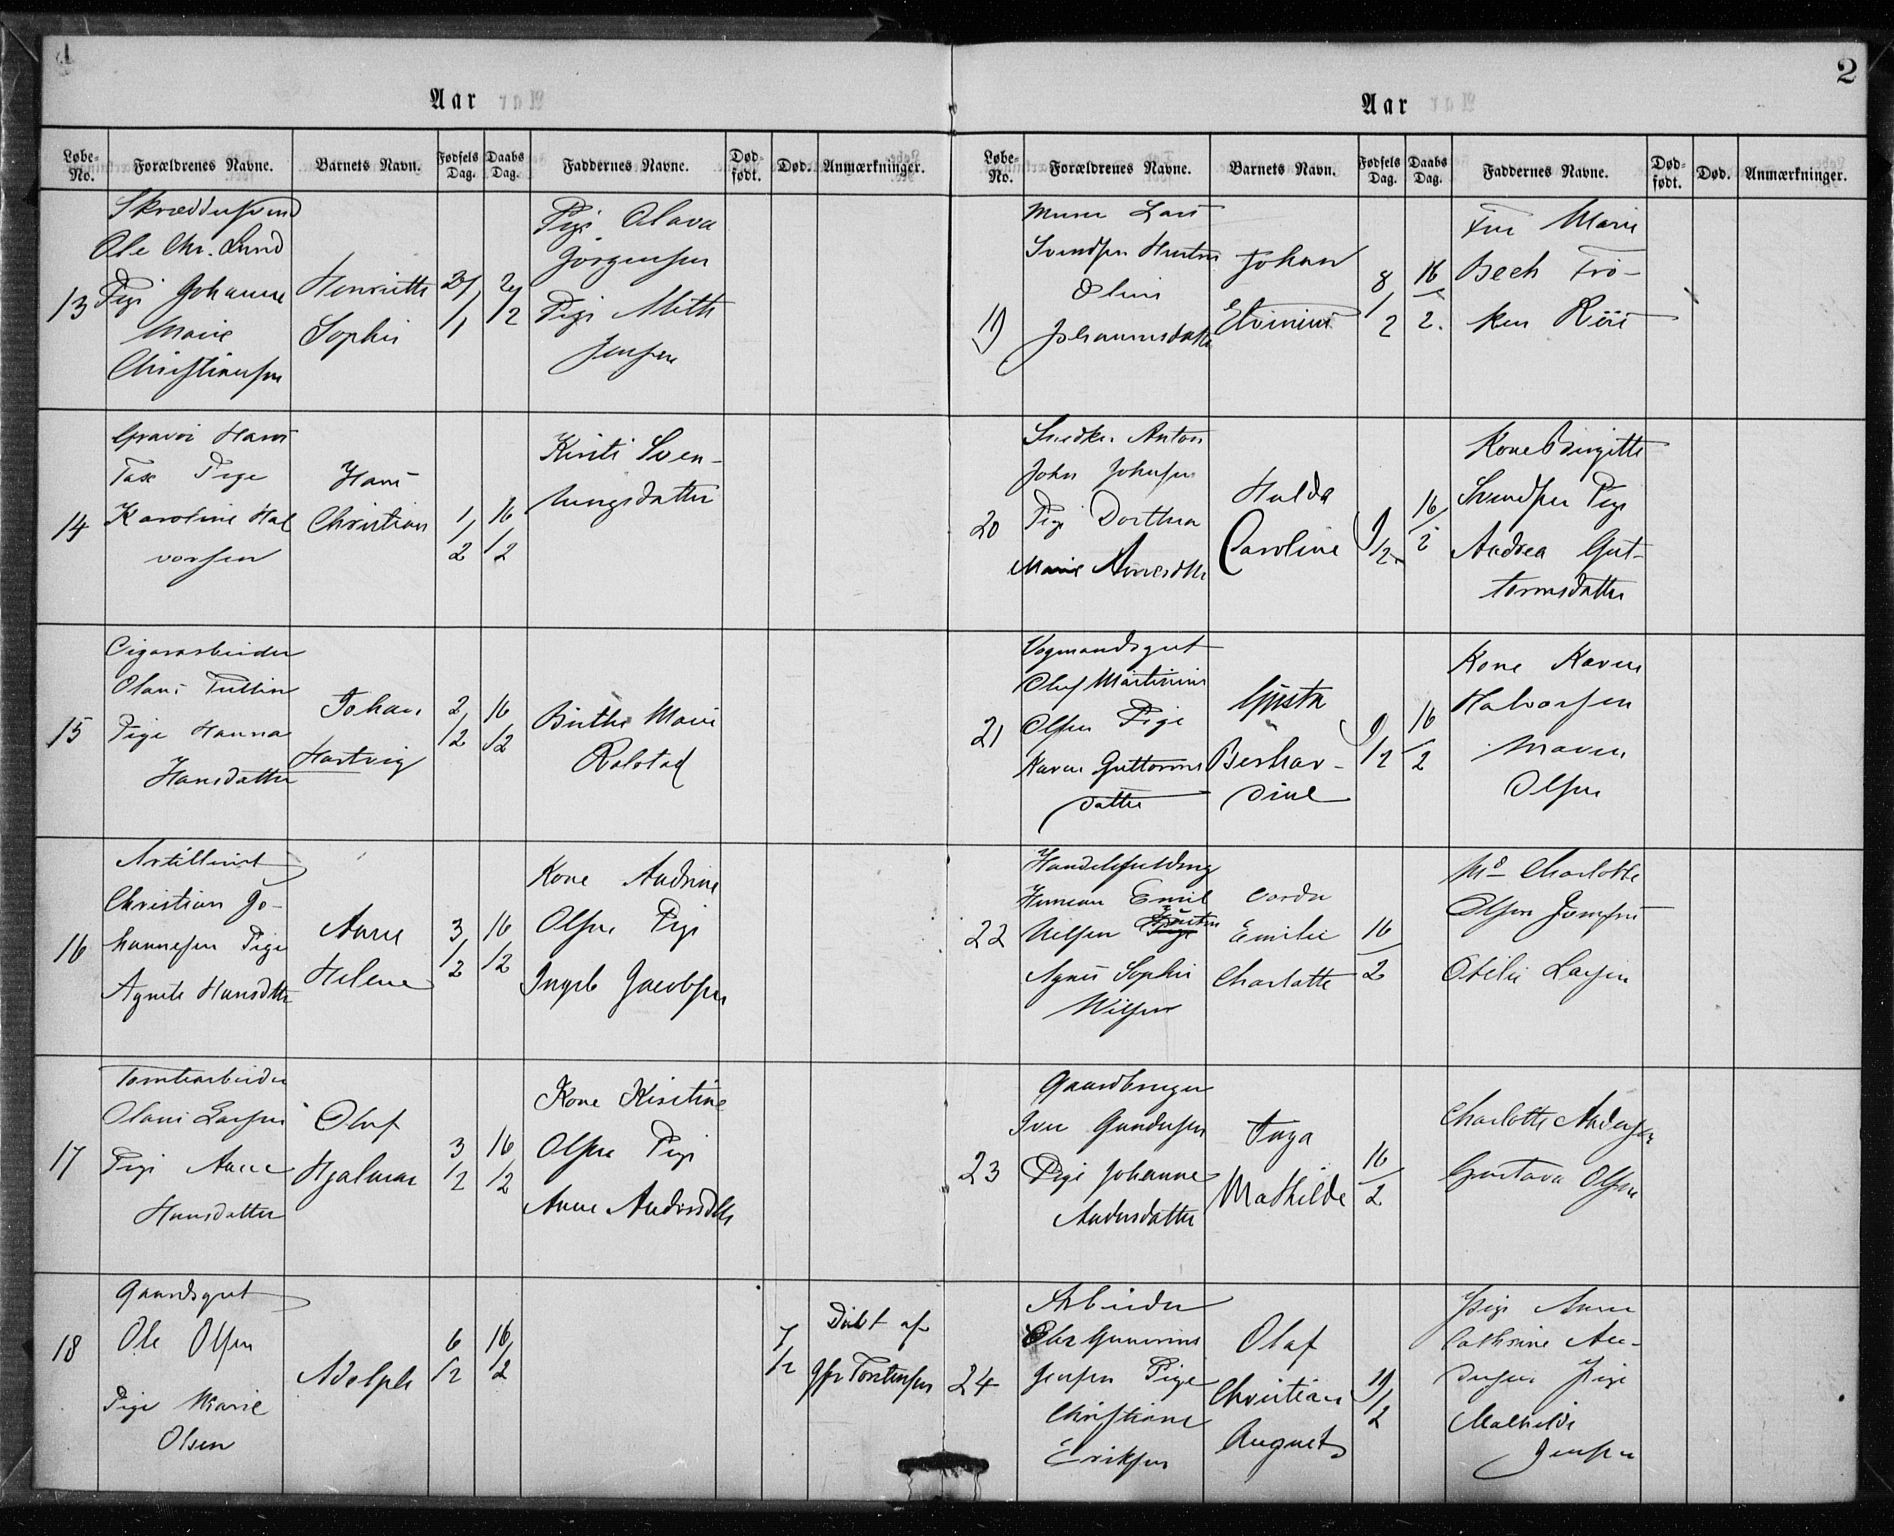 1
Aar
Løbe-No. Forældrenes Navne. Barnets Navn. Fødsels Dag. Daabs Dag. Faddernes Navne. Død-født. Død. Anmærkninger.
13
Skræddersvend
Ole Chr. Lund
Pige Johanne
Marie
Christiansen
Henriette
Sophie
2/2
Pige Olava
Jörgensen
Pige Mette
Jensen
14
Gravör Hans
Tax Pige
Karoline Hal
vorsen
Hans
Christian
1/2
16/2
Kirsti Sven-
ungsdatter
15
Cigararbeider
Olaus Tullin
Pige Hanna
Hansdatter
Johan
Hartvig
2/2
16/2
Birthe Marie
Rolstad
16
Artillerist
Christian Jo-
hannesen Pige
Agnete Hansdtr
Anne
Helene
3/2
16/2
Kone Andrine
Olsen Pige
Ingeb Jacobsen
17
Tomtearbeider
Olaus Larsen
Pige Anne
Hansdatter
Olaf
Hjalmar
3/2
16/2
Kone Kirstine
Olsen Pige
Anne Andersdtr
18
Gaardsgut
Ole Olsen
Pige Marie
Olsen
Adolph
6/2
16/2
7/2
Döbt af
Jfr Torstensen
2
Aar
Løbe-No. Forældrenes Navne. Barnets Navn. Fødsels Dag. Daabs Dag. Faddernes Navne. Død-født. Død. Anmærkninger.
19
Murer Lars
Svendsen Hustru
Oline
Johannesdatter
Johan
Elvinius
8/2
16/2.
Fru Marie
Bech Frö-
ken Riis
20
Snedker Anton
John Johnsen
Pige Dorthea
Marie Arnesdtr
Hulda
Caroline
9/2
16/2
Kone Birgitte
Svendsen Pige
Andrea Gut-
tormsdatter
21
Vognmandsgut
Oluf Martinius
Olsen Pige
Karen Guttorms
datter
Gusta
Berhar-
dine
9/2
16/2
Kone Karen
Halvorsen
Maren
Olsen
22
Handelsfuldmg
Herman Emil
Nilsen Hustru
Agnes Sophie
Nilsen
Emilie
Charlotte
16/2
Md Charlotte
Olsen Jomfru
Otilie Larsen
23
Gaardbruger
Iver Gundersen
Pige Johanne
Andersdatter
Inga
Mathilde
16/2
Charlotte Andersen
Gustava Olsen
24
Arbeider
Gunerius
Jensen Pige
Christiane
Eriksen
Olaf
Christian
August
19/2
Pige Anne
Cathrine An-
dersen Pige
Mathilde
Jensen